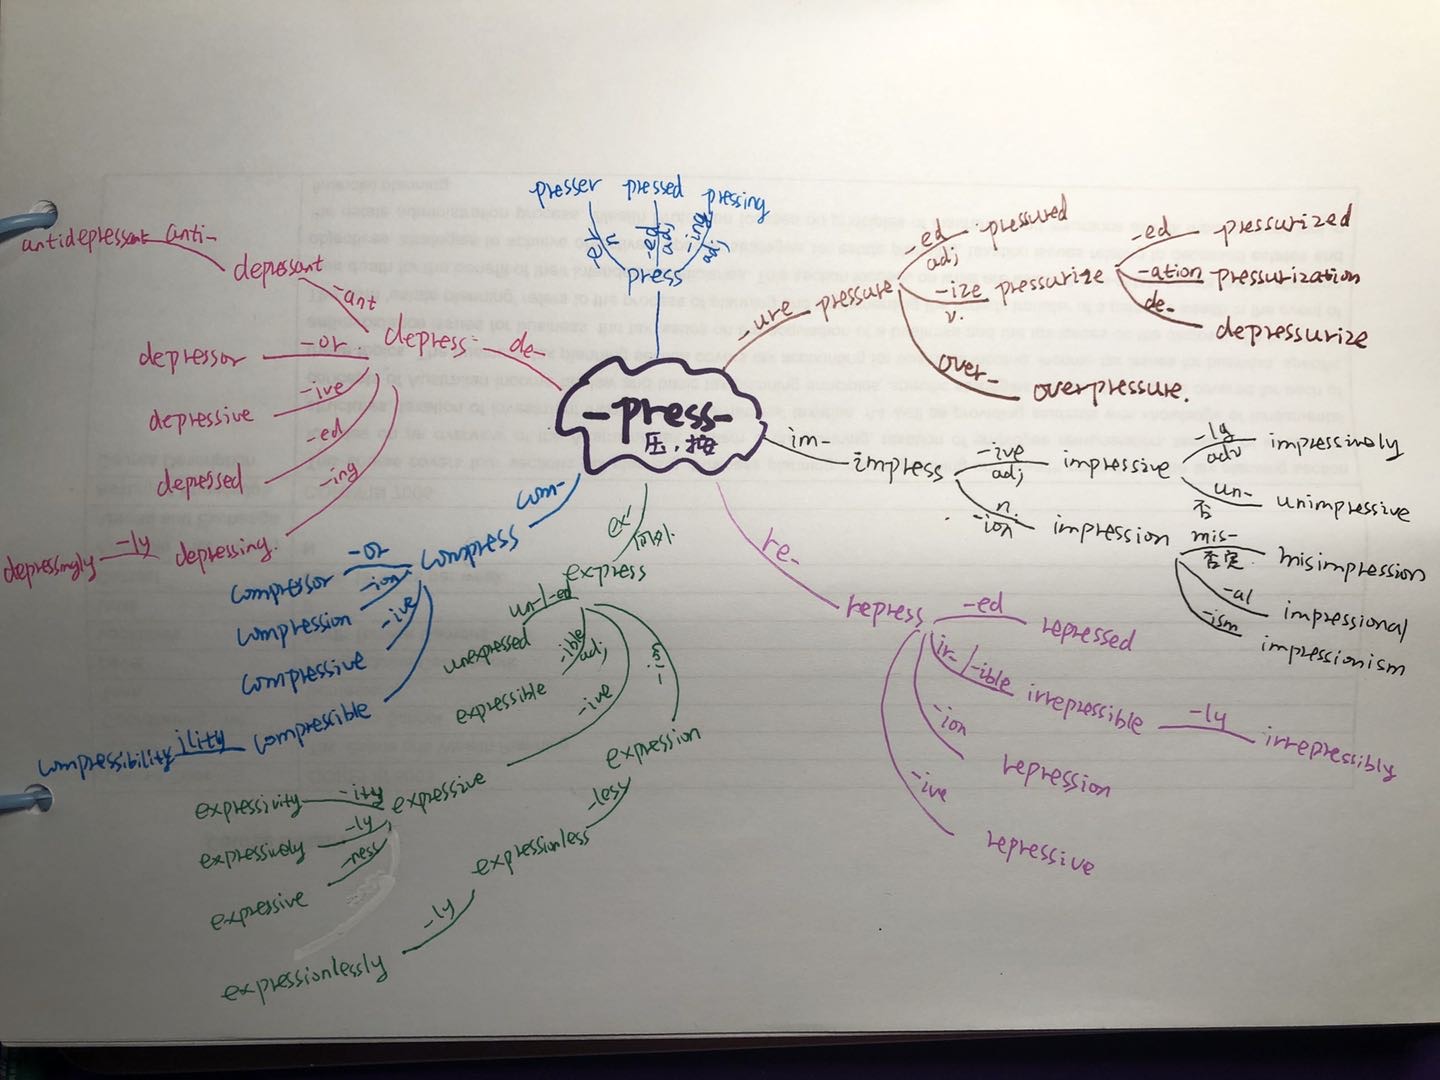 -press-
压，按
press
-er
n
presser
-ed
adj
pressed
-ing
adj
pressing
-ure
pressure
-ed
adj
pressured
-ize
v.
pressurize
-ed
pressurized
-ation
pressurization
de-
depressurize
over-
overpressure.
im-
impress
-ive
adj
impressive
-ly
adv
impressively
un-
否
unimpressive
n.
-ion
impression
mis-
否定
misimpression
-al
impressional
-ism
impressionism
re-
repress
-ed
repressed
ir- / -ible
irrepressible
-ly
irrepressibly
-ion
repression
-ive
repressive
ex-
express
un-/-ed
unexpressed
-ible
adj
expressible
-ive
expressive
-ity
expressivity
-ly
expressively
-ness
expressive
expression
-less
expressionless
-ly
expressionlessly
com-
compress
-or
compressor
-ion
compression
-ive
compressive
compressible
ility
compressibility
de-
depress
-ant
depressant
anti-
antidepressant
-or
depressor
-ive
depressive
-ed
depressed
-ing
depressing.
-ly
depressingly